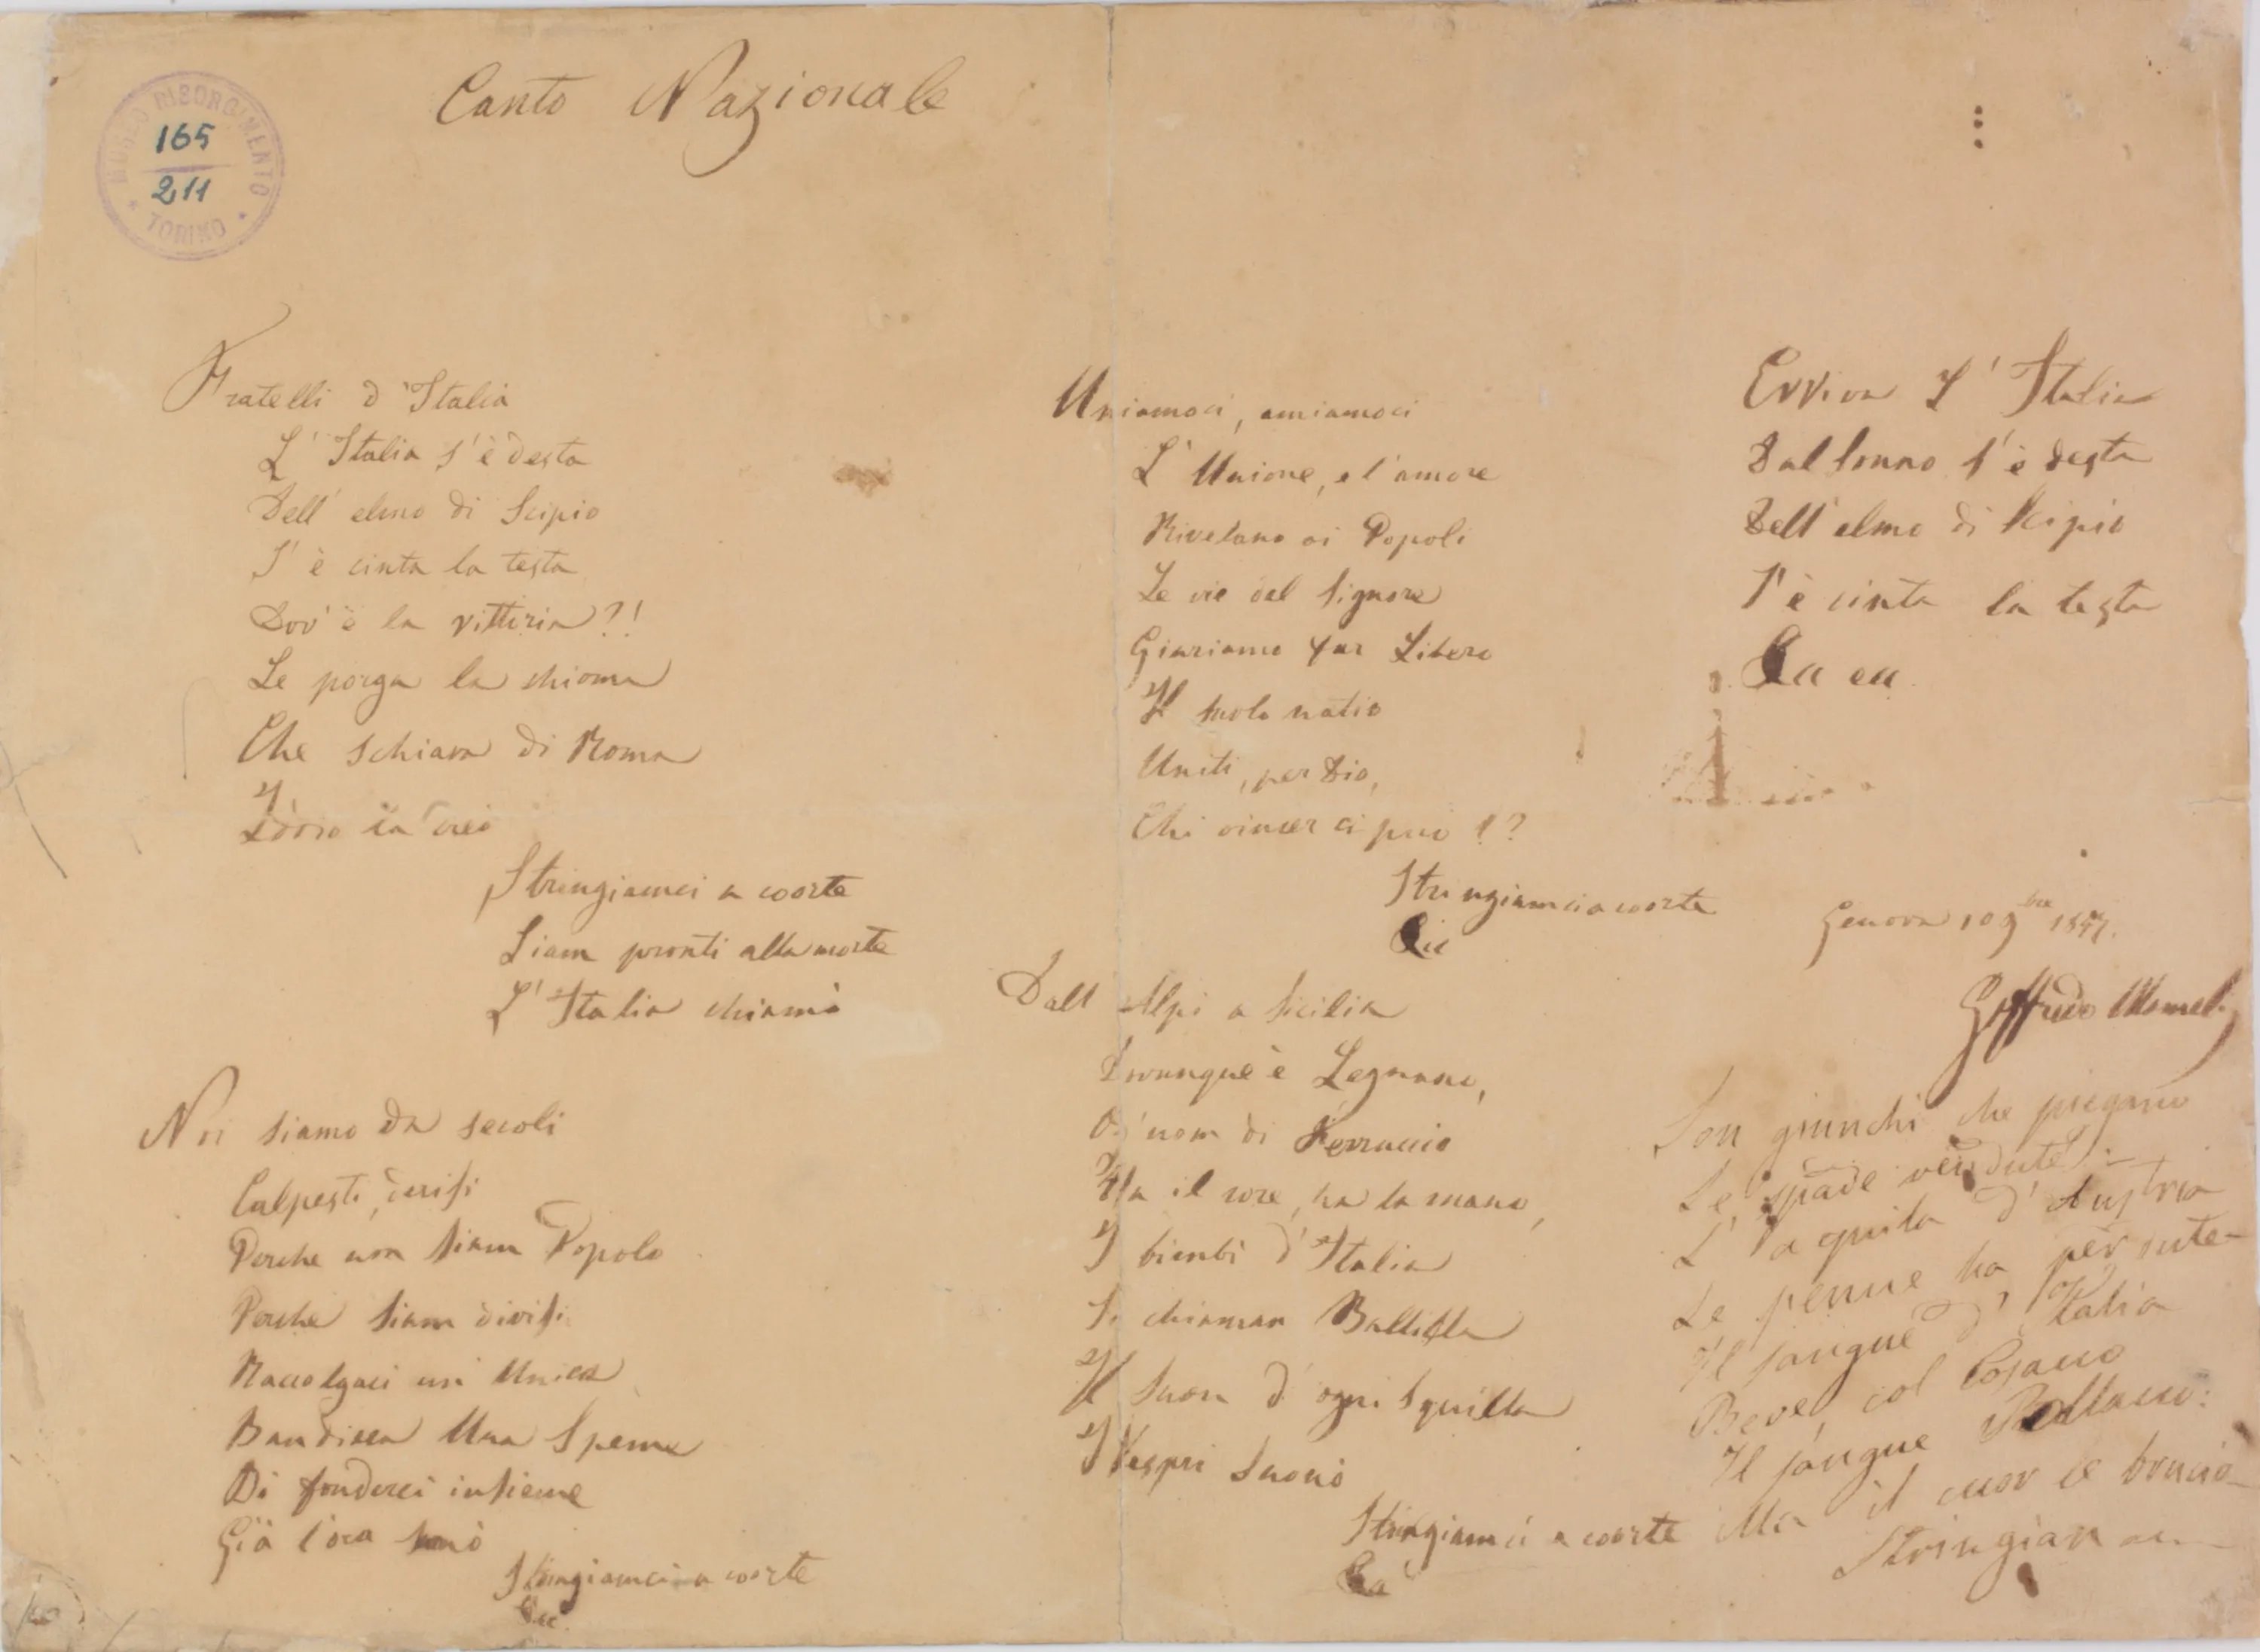 Canto Nazionale
MUSEO RISORGIMENTO
165
211
TORINO
Fratelli d'Italia
L'Italia s'è desta
Dell' elmo di Scipio
S'è cinta la testa
Dov'è la vittoria?!
Le porga la chioma
Che schiava di Roma
Iddio la creò
Stringiamci a coorte
Siam pronti alla morte
L'Italia chiamò
Noi siamo da secoli
Calpesti, derisi
Perche non siam Popolo
Perche siam divisi
Raccolgaci un' Unica
Bandiera Una Speme
Di fonderci insieme
Già l'ora suonò
Stringiamci a coorte
Uniamoci, amiamoci
L'Unione, e l'amore
Rivelano ai Popoli
Le vie del Signore
Giuriamo far Libero
Il suolo natio
Uniti, per Dio,
Chi vincer ci può !?
Stringiamci a coorte
Dall' Alpi a Sicilia
Dovunque è Legnano,
Og'uom di Ferruccio
Ha il core, ha la mano,
I bimbi d'Italia
Si chiaman Balilla
Il suon d'ogni squilla
I Vespri suonò
Stringiamci a coorte
Evviva l'Italia
Dal sonno s'è desta
Dell'elmo di Scipio
S'è cinta la testa
Genova 10 9bre 1847.
Goffredo Mameli
Son giunchi che piegano
Le spade vendute
L'aquila d'Austria
Le penne ha perdute
Il sangue d'Italia
Bevé, col Cosacco
Il sangue Pollacco:
Ma il cuor le bruciò
Stringiam